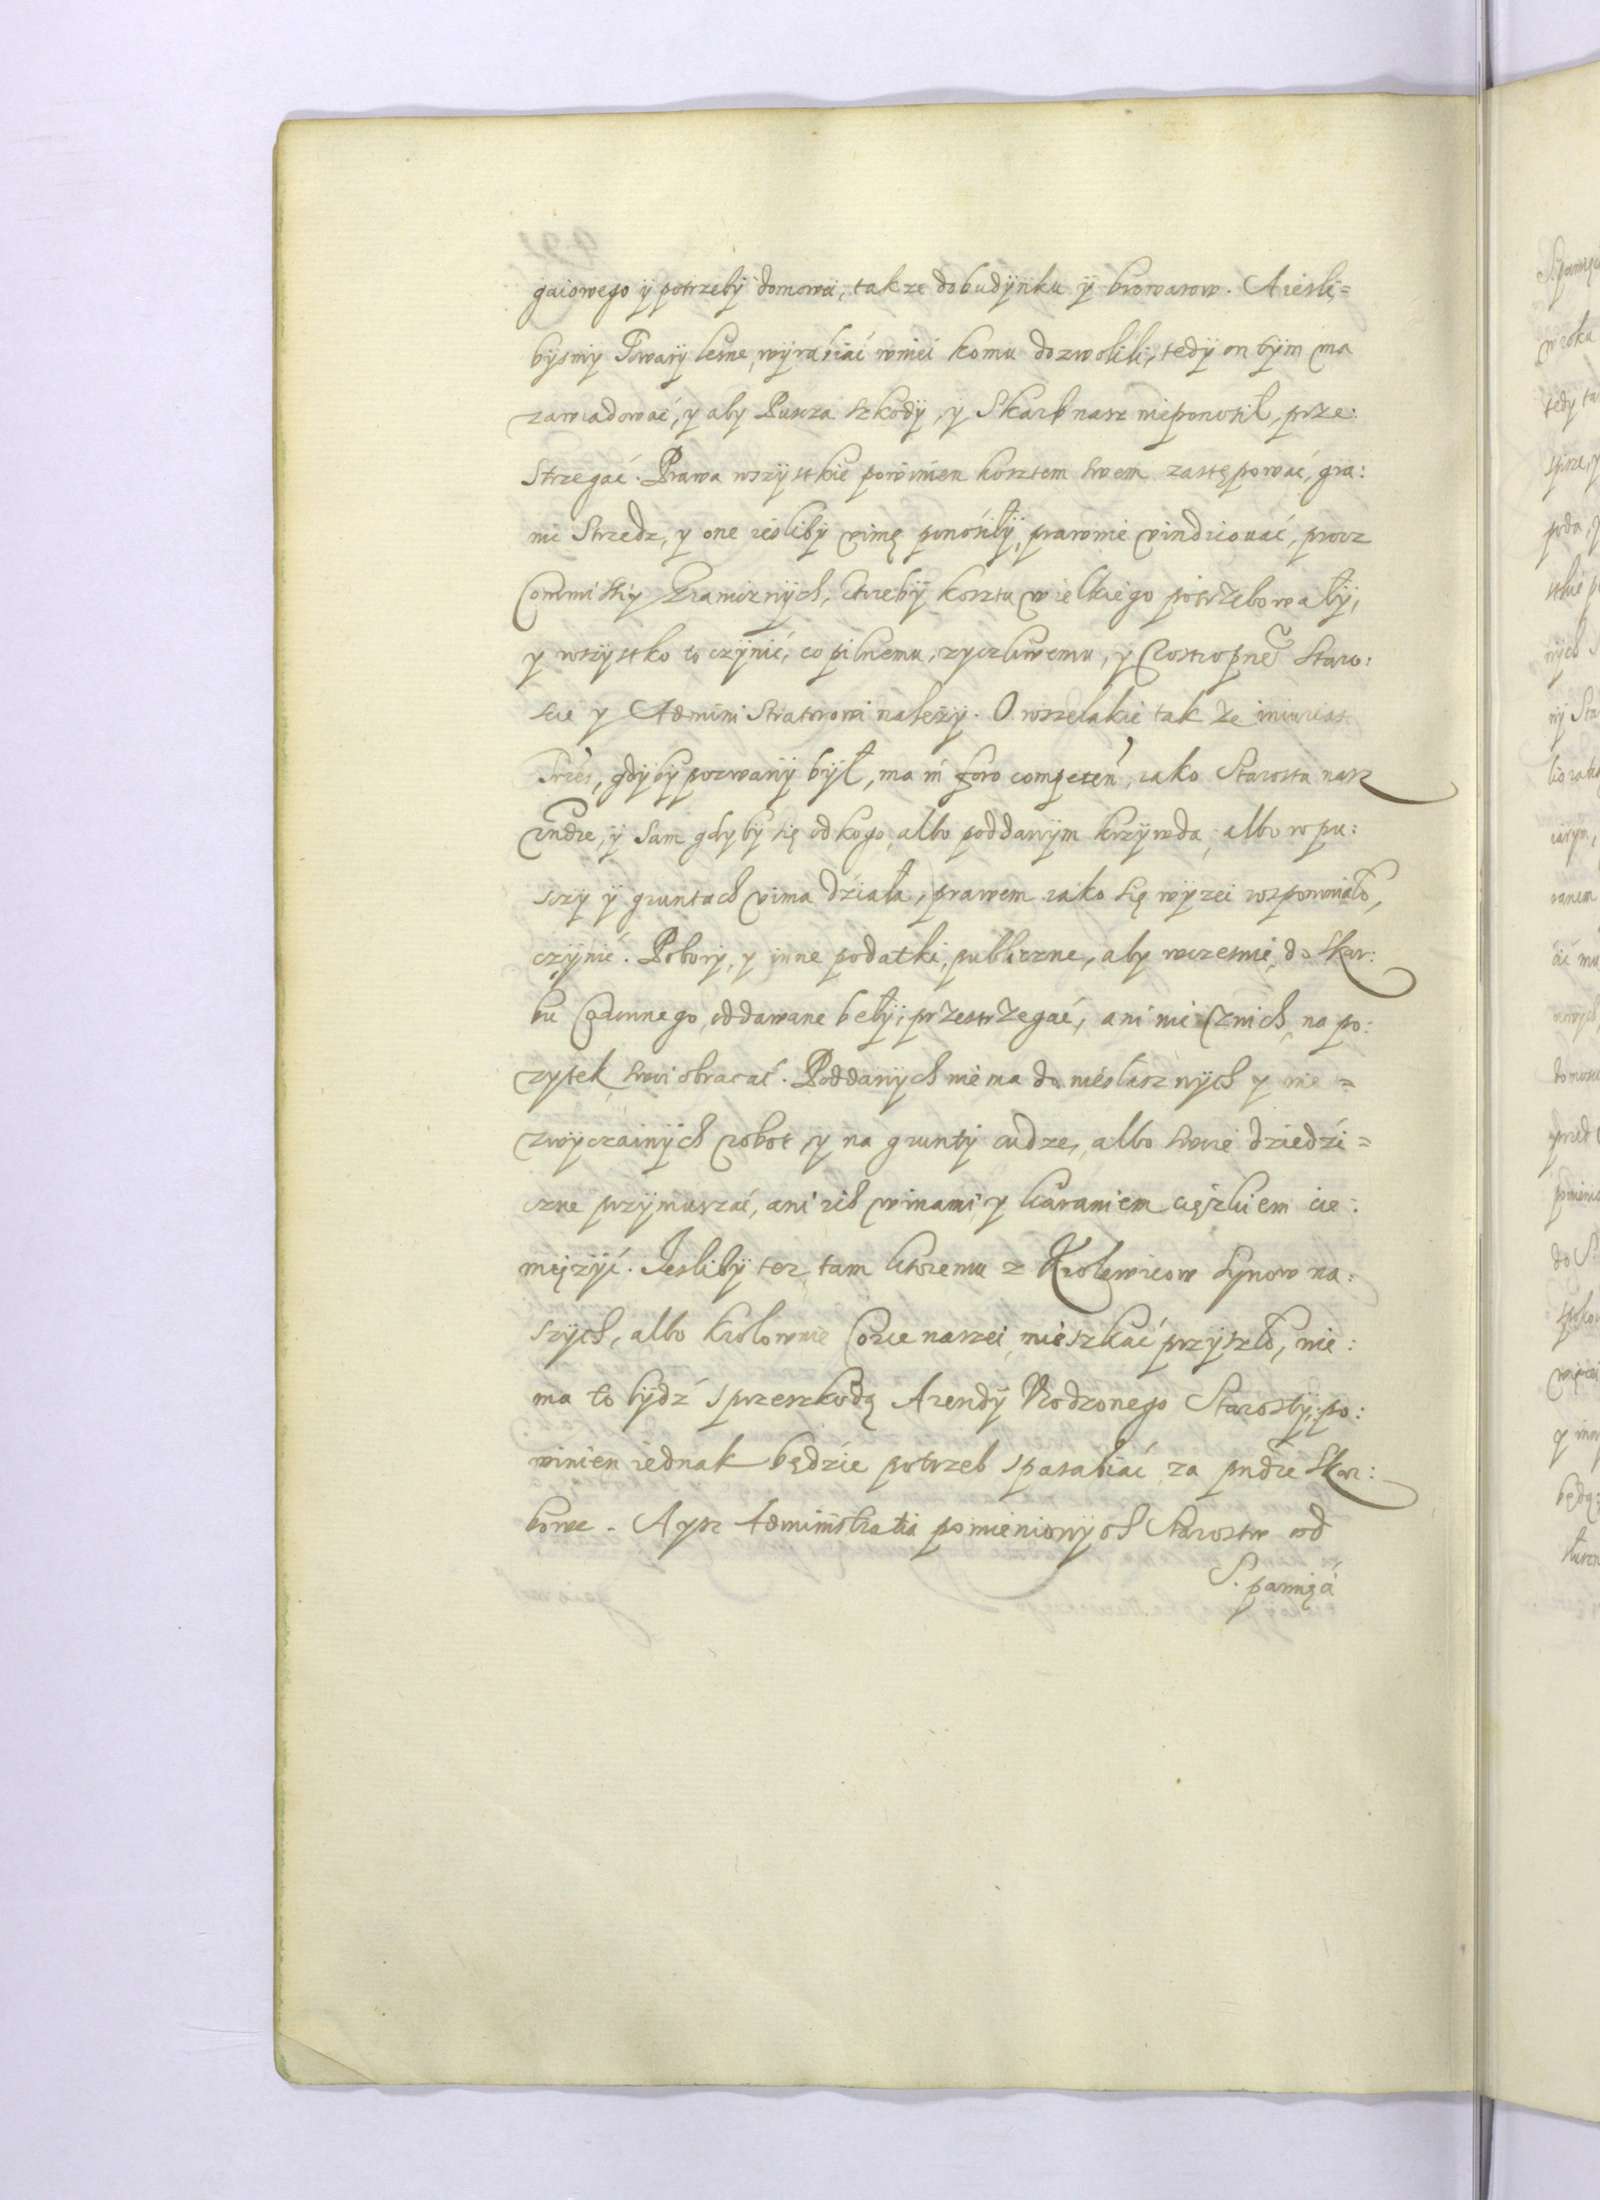 gaiowego ÿ potrzebÿ domowei, takze do budÿnku ÿ browarow. A iesli=
bÿsmÿ Towarÿ lesne, wÿrabiać wniei komu dozwolili, tedÿ on tÿm ma
zawiadować, y aby Puscza szkodÿ, ÿ Skarb nasz nieponosił, prze:
strzegać. Prawa wszÿstkie powinien kosztem swem zastępować, gra:
nic Strzedz, y one iesliby vimę ponosiłÿ, prawnie vindicować, procz
Commissiy Granicznÿch, ktoreby kosztu wielkiego potrzebowałÿ,
y wszÿstko to czÿnić, co pilnemu, zyczliwemu, y Rostropne° Staro:
scie y Administratorowi nalezÿ. O wszelakie takze iniurias
gdÿbÿ pozwanÿ bÿł, ma in foro competen, iako Starosta nasz
ÿ sam gdyby się od kogo, albo poddanÿm krzÿwda, albo w pu:
sczy ÿ gruntach vima działa, prawem iako się wÿzei wspomniało,
czÿnić. Poborÿ, y inne podatki, publiczne, aby wczesnie, do Skar:
bu Coronnego, oddawane bełÿ, przestrzegać, ani nic znich, na po:
zytek swoi obracać. Poddanÿch niema do niesłusznÿch y nie=
zwÿczainÿch robot, y na gruntÿ cudze, albo swoie dziedzi=
czne przÿmuszać, ani ich winami y karaniem cięzkiem cie:
mięzÿć. Iesliby tez tam ktoremu z Krolewicow Synow na:
szÿch, albo Krolownie Corce naszei, mieszkać przÿszło, nie:
ma to bÿdź sprzeszkodą Arendÿ Vrodzonego Starostÿ, po:
winien iednak będzie potrzeb sparabiać za pndze Skar:
bowe. A ysz Administratia pomienionÿch Starostw od
S. pamięci